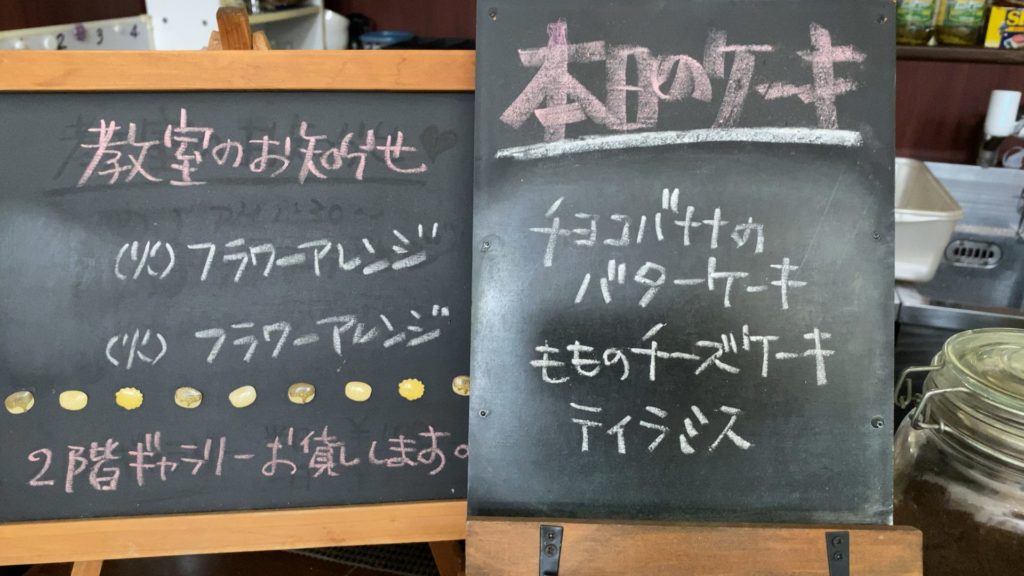 教室のお知らせ
(火)フラワーアレンジ
(火)フラワーアレンジ
2階ギャラリーお貸しします。
本日のケーキ
チョコバナナの
バターケーキ
もものチーズケーキ
ティラミス
2 3 4